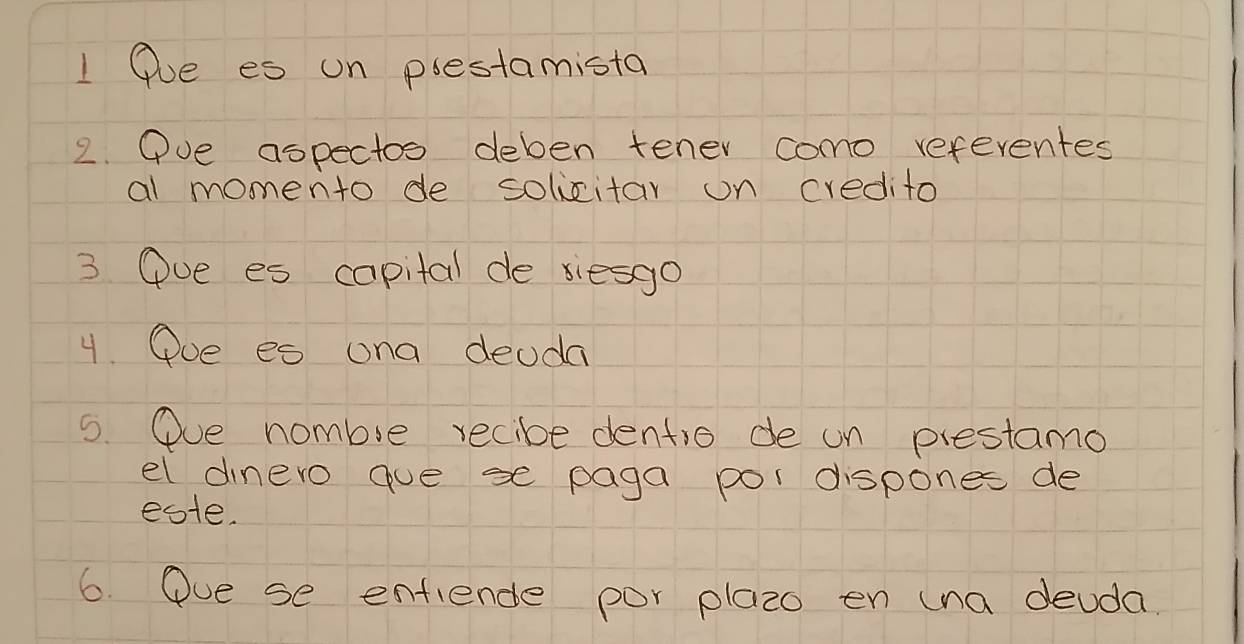 1 Que es un prestamista
2. Que aspectos deben tener como referentes
al momento de solicitar un credito
3 Que es capital de riesgo
4. Que es una deuda
5. Que nombre recibe dentro de un prestamo
el dinero que se paga por dispones de
este.
6. Que se entiende por plazo en una deuda.